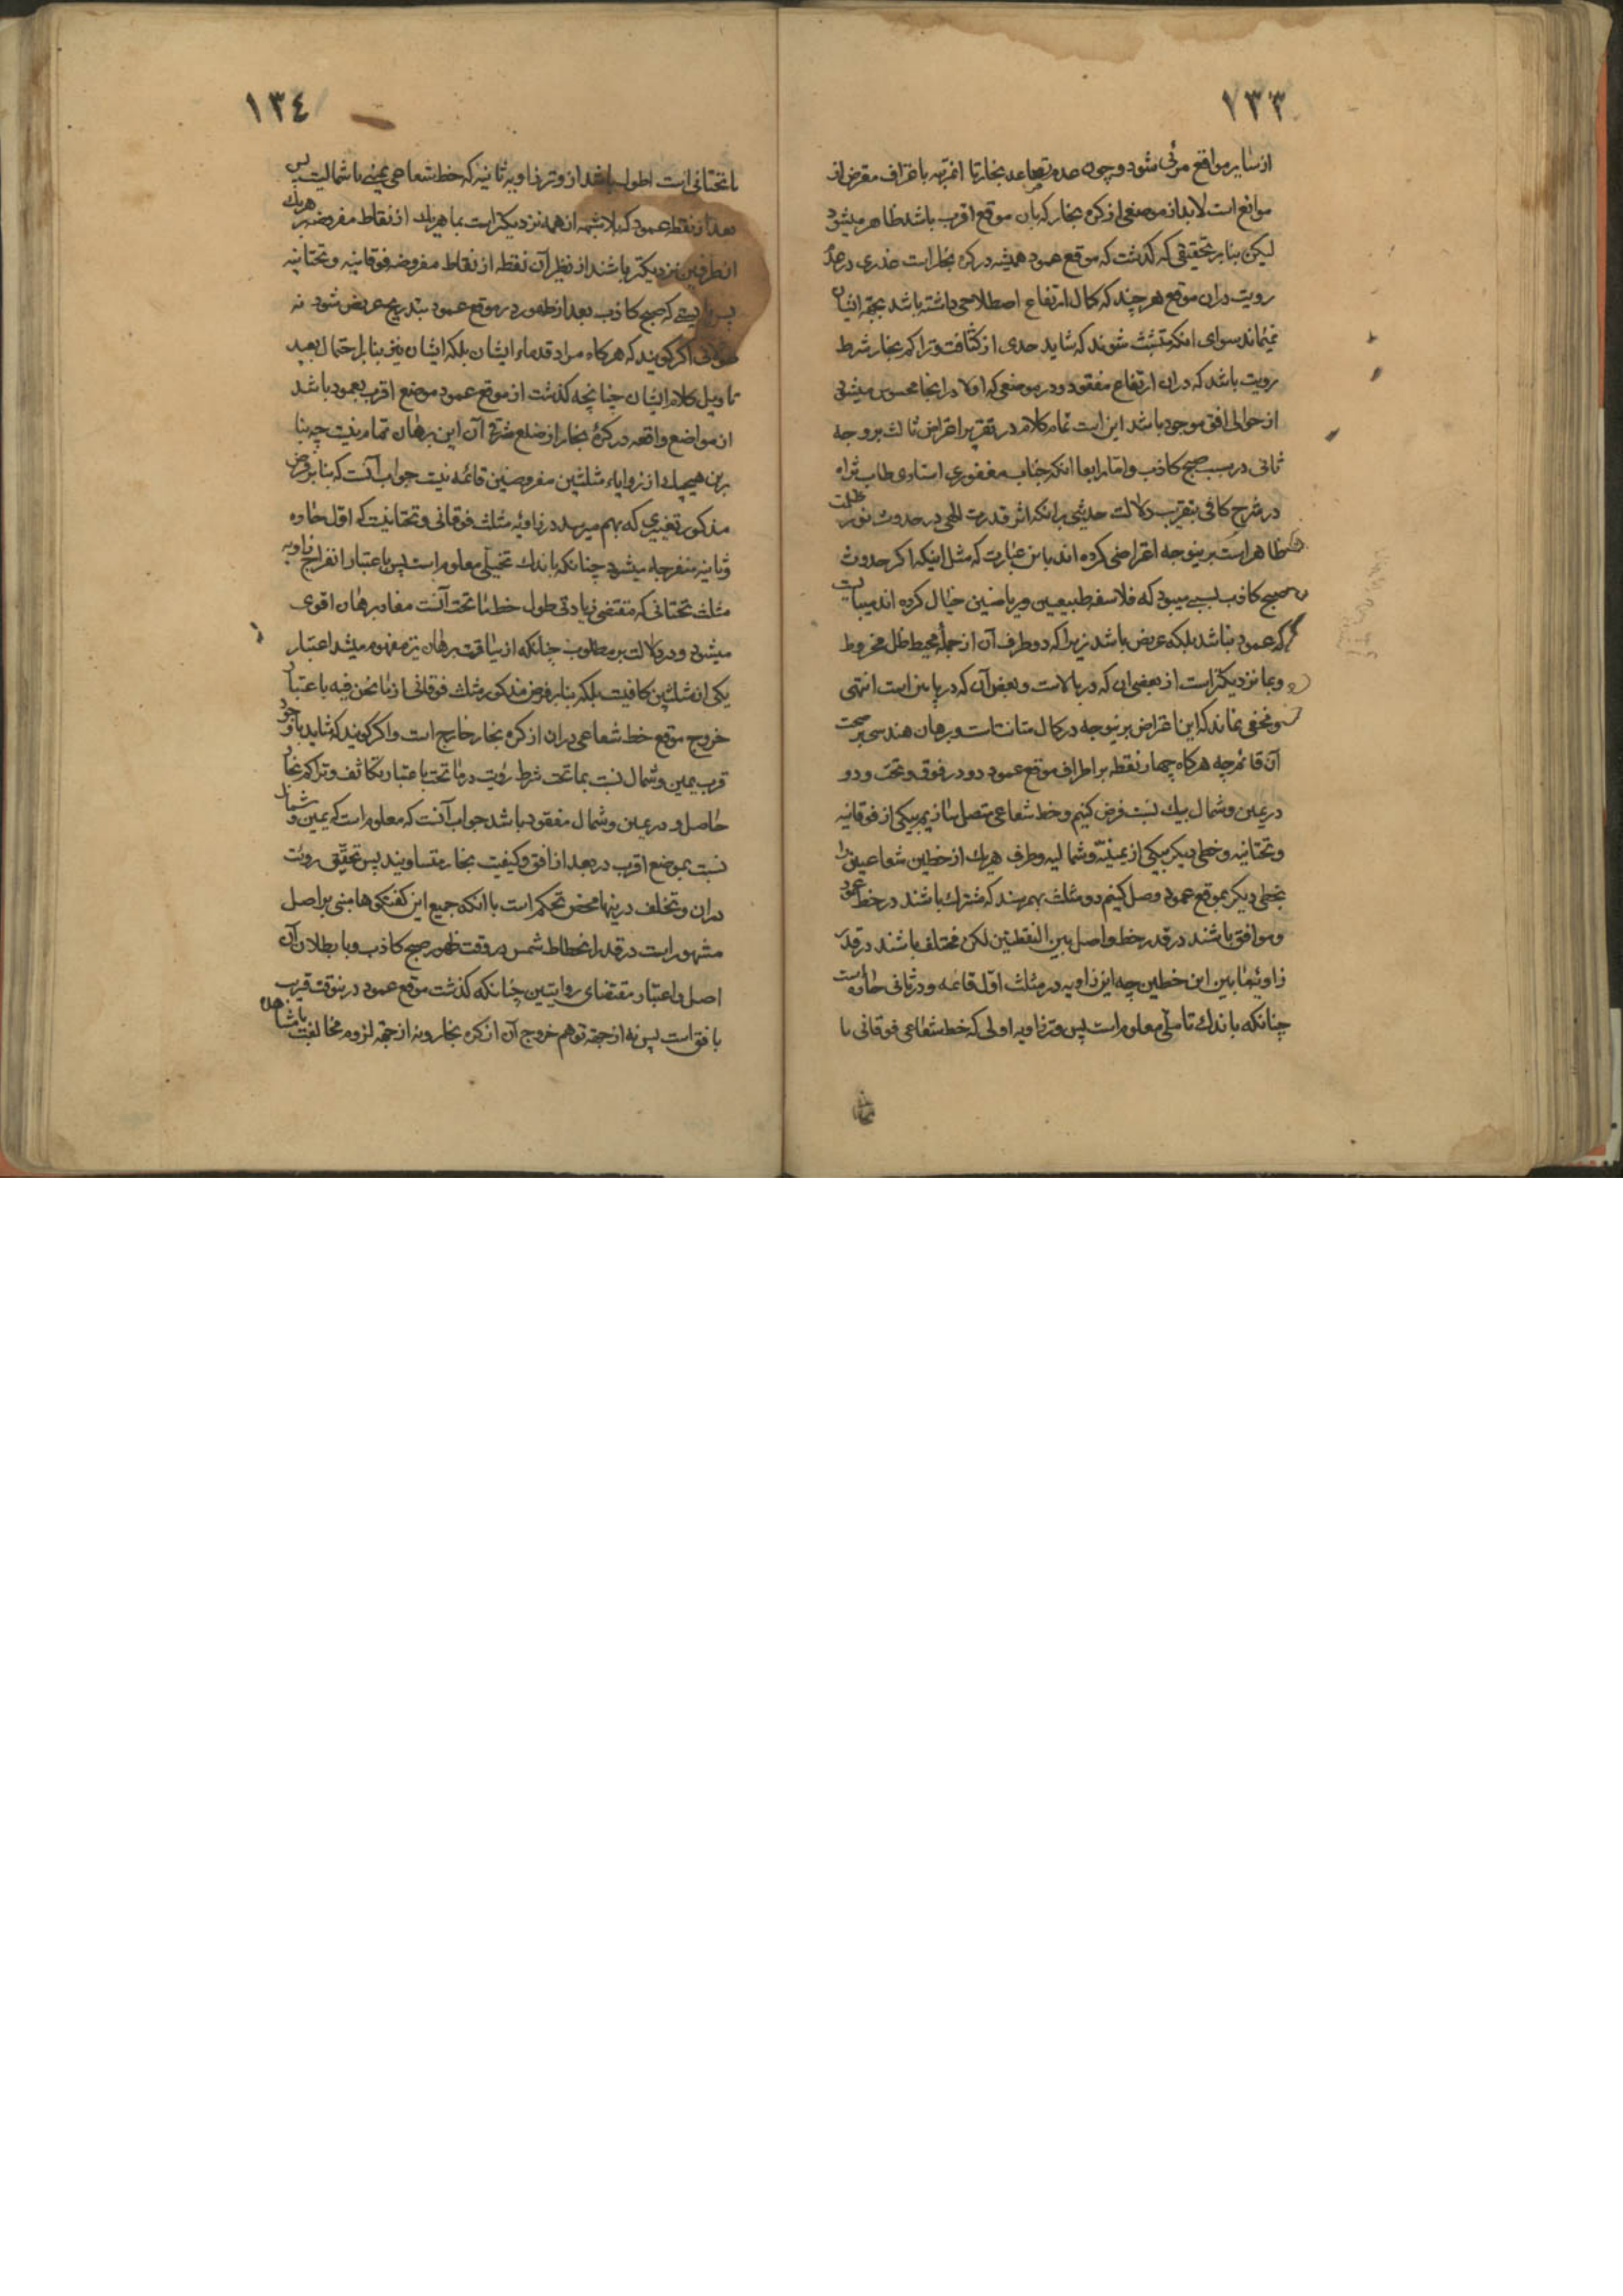 ۷۳۳
از سایر مواقع مرئی شود و چون صدور تصاعد بخار تا انقریبه باعتراف مقرض از
موانع است لابد از موضعی از کره بخار که بان موقع اقرب باشد ظاهر میشود
لیکن بنابر تحقیقی که گذشت که موقع عمود همیشه در کره بخار است عذری در عدم
رویت در ان موقع هر چند که کمال ارتفاع اصطلاحی داشته باشد بجهة ایشان
نمیماند سوای انکه متشبث شوند که شاید حدی از کثافت و تراکم بخار شرط
رویت باشد که در ان ارتفاع مفقود و در موضعی که اولا در انجا محسوس میشود
از حوالی افق موجود باشد این است تمام کلام در تقریر اعتراض ثالث بر وجه
ثانی در سبب صبح کاذب و اما رابعا انکه جناب مغفوری استادی طاب ثراه
در شرح کافی بتقریب دلالت حدیثی بر انکه اثر قدرت الهی در حدوث نور و ظلمت
ظاهر است برینوجه اعتراضی کرده اند باین عبارت که مثل اینکه اکر حدوث
صبح کاذب بسببی میبود که فلاسفه طبیعیین و ریاضیین خیال کرده اند میبایست
که عمود نباشد بلکه عریض باشد زیرا که دو طرف آن از جملهٔ محیط ظل مخروط
و بما نزدیکتر است از بعضی ان که در بالاست و بعض آن که در پایین است انتهی
و مخفی نماند که این اعتراض برینوجه در کمال متانت است و برهان هندسی بر صحت
آن قائم چه هرکاه چهار نقطه بر اطراف موقع عمود دو در فوق و تحت و دو
در یمین و شمال بیک نسبت فرض کنیم و خط شعاعی متصل سازیم بیکی از فوقانیه
و تحتانیه و خطی دیکر بیکی از یمینیه و شمالیه و طرف هر یک از خطین شعاعیین را
بخطی دیکر بموقع عمود وصل کنیم دو مثلث بهم رسند که مشترک باشند در خط عمود
و موافق باشند در قدر خط واصل بین النقطتین لکن مختلف باشند در قدر
زاویه ما بین این خطین چه این زاویه در مثلث اول قائمه و در ثانی حاده است
چنانکه باندک تاملی معلوم است پس وتر زاویه اولی که خط شعاعی فوقانی یا
۱۳٤
یا تحتانی است اطول باشد از وتر زاویه ثانیه که خط شعاعی یمینی یا شمالیست پس
بعد از نقطه عمود که بلا شبهه از همه نزدیکتر است بما هریک از نقاط مفروضه بر هریک
از طرفین نزدیکتر باشند از نظیر آن نقطه از نقاط مفروضه فوقانیه و تحتانیه
پس بایستی که صبح کاذب بعد از ظهور در موقع عمود بتدریج عریض شود نه
طولانی اکر کویند که هرکاه مراد قدماء ایشان بلکه ایشان نیز بنابر احتمال بعید
تاویل کلام ایشان چنانچه گذشت از موقع عمود موضع اقرب بعمود باشد
از مواضع واقعه در کرهٔ بخار از ضلع شرقی آن این برهان تمام نیست چه بنا
برین هیچیک از زوایاء مثلثین مفروضین قائمه نیست جواب آنست که بنابر فرض
مذکور تغییری که بهم میرسد در زاویه مثلث فوقانی و تحتانیست که اول حاده
و ثانیه منفرجه میشود چنانکه باندک تخیلی معلوم است پس باعتبار انفراج زاویه
مثلث تحتانی که مقتضی زیادتی طول خط ما تحت آنست مفاد برهان اقوی
میشود و در دلالت بر مطلوب چنانکه از سیاقت برهان نیز مفهوم میشد اعتبار
یکی از مثلثین کافیست بلکه بنابر فرض مذکور مثلث فوقانی از ما نحن فیه باعتبار
خروج موقع خط شعاعی در ان از کره بخار خارج است و اکر کویند که شاید با وجود
قرب یمین و شمال نسبت بما تحت شرط رؤیت در ما تحت باعتبار تکاثف و تراکم بخار
حاصل و در یمین و شمال مفقود باشد جواب آنست که معلوم است که یمین و شمال
نسبت بموضع اقرب در بعد از افق و کیفیت بخار متساویند پس تحقق رویت
در ان و تخلف درینها محض تحکم است با انکه جمیع این کفتکوها مبنی بر اصل
مشهور است در قدر انحطاط شمس در وقت ظهور صبح کاذب و با بطلان آن
اصل و اعتبار مقتضای روایتین چنانکه گذشت موقع عمود درینوقت قریب
بافق است پس نه از جهة توهم خروج آن از کره بخار و نه از جهة لزوم مخالفت با مشاهده